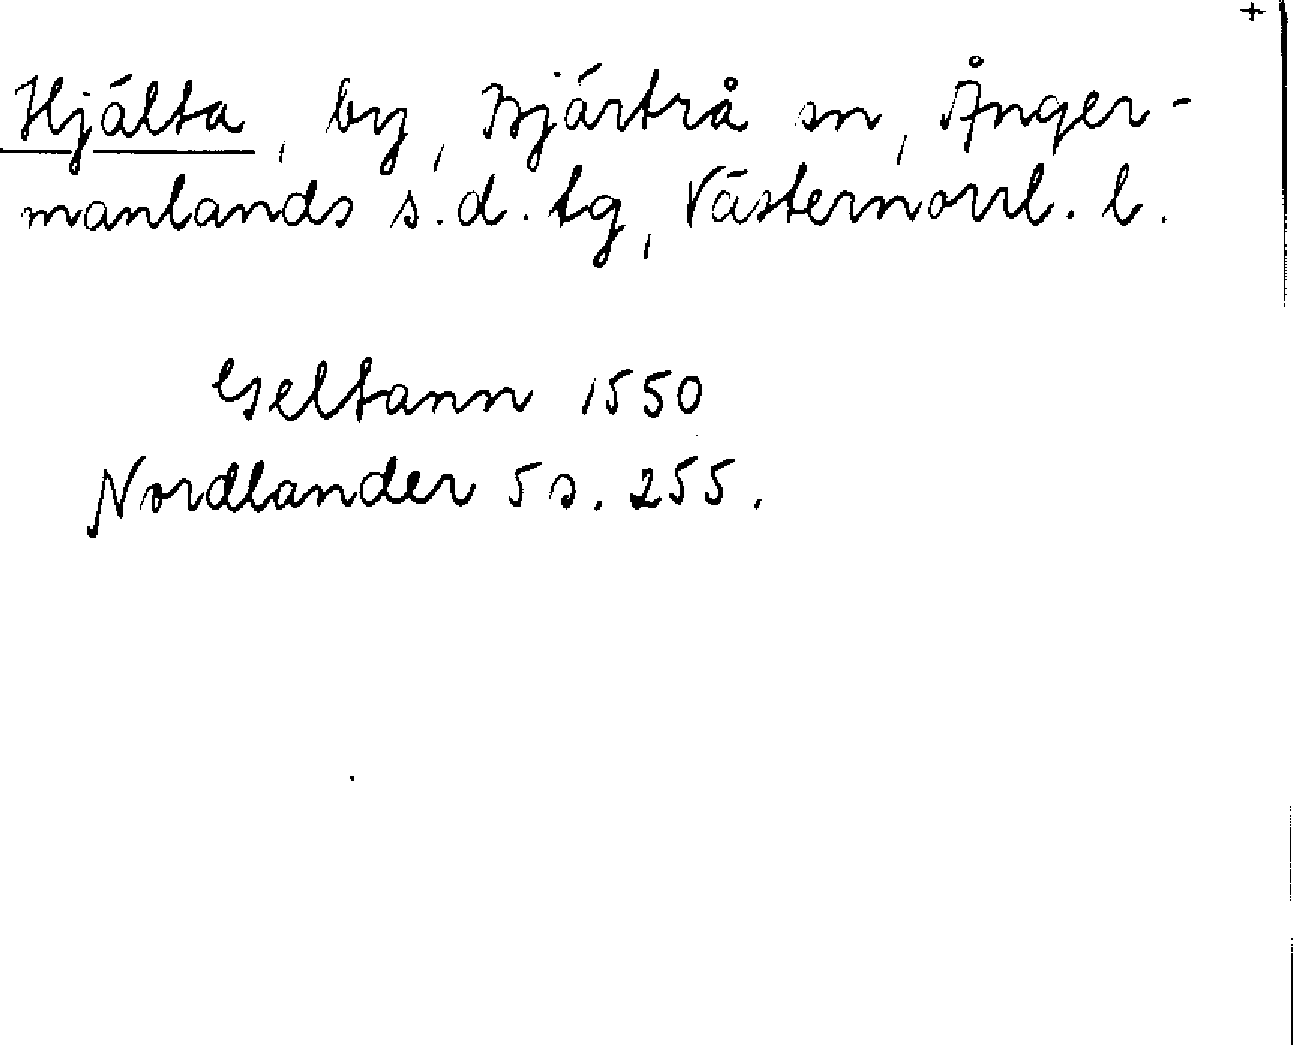 +
Hjälta, by, Bjärtrå sn, Ånger-
manlands s.d. tg, Västernorrl. l.
Geltann 1550
Nordlander 5 s. 255.